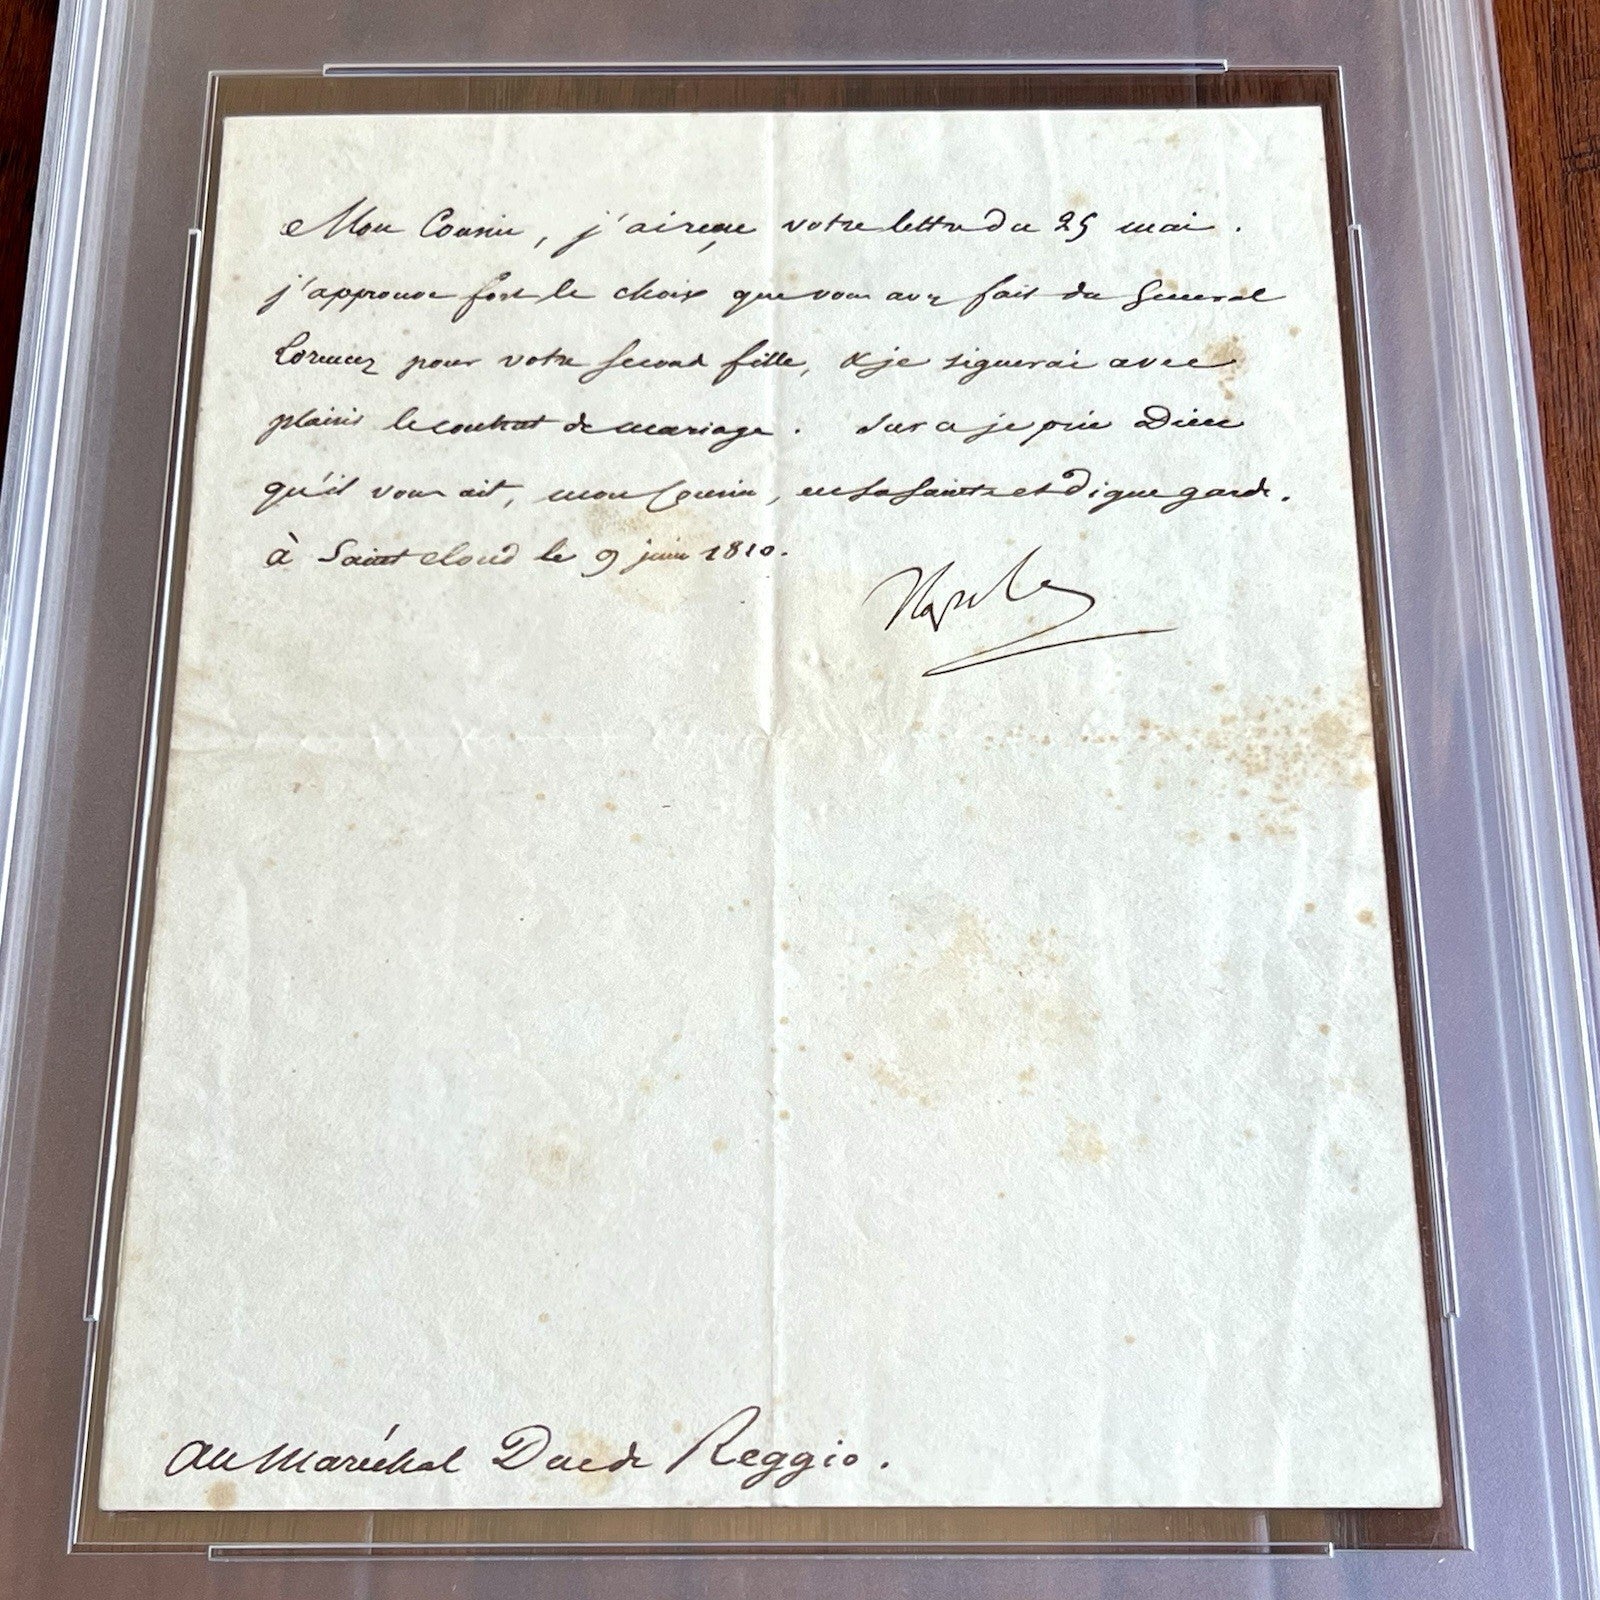 Mon Cousin, j'ai reçu votre lettre du 25 mai.
j'approuve fort le choix que vous avez fait du General
Lorencez pour votre seconde fille, & je signerai avec
plaisir le contrat de mariage. Sur ce je prie Dieu
qu'il vous ait, mon Cousin, en sa sainte et digne garde.
à Saint Cloud le 9 juin 1810.
Napole
Au Maréchal Duc de Reggio.